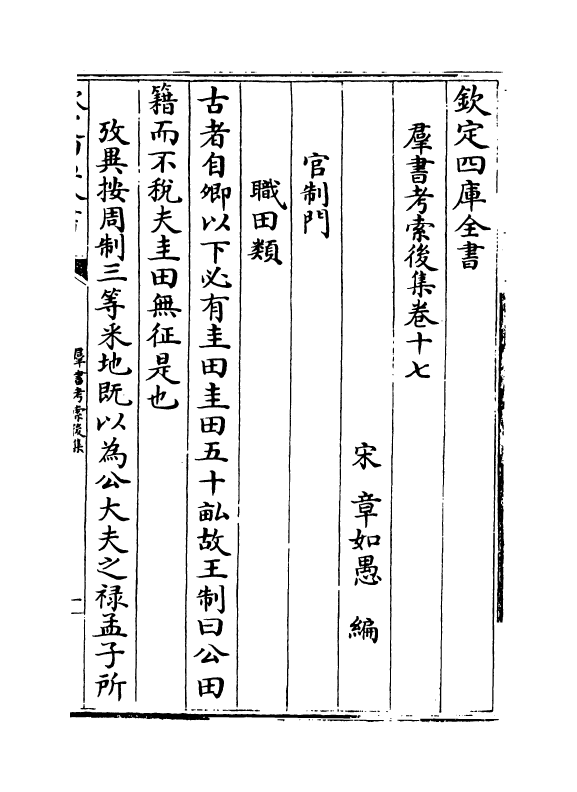 欽定四庫全書
羣書考索後集卷十七
宋 章如愚 編
官制門
職田類
古者自卿以下必有圭田圭田五十畝故王制曰公田
籍而不稅夫圭田無征是也
攷異按周制三等采地既以為公大夫之禄孟子所
羣書考索後集